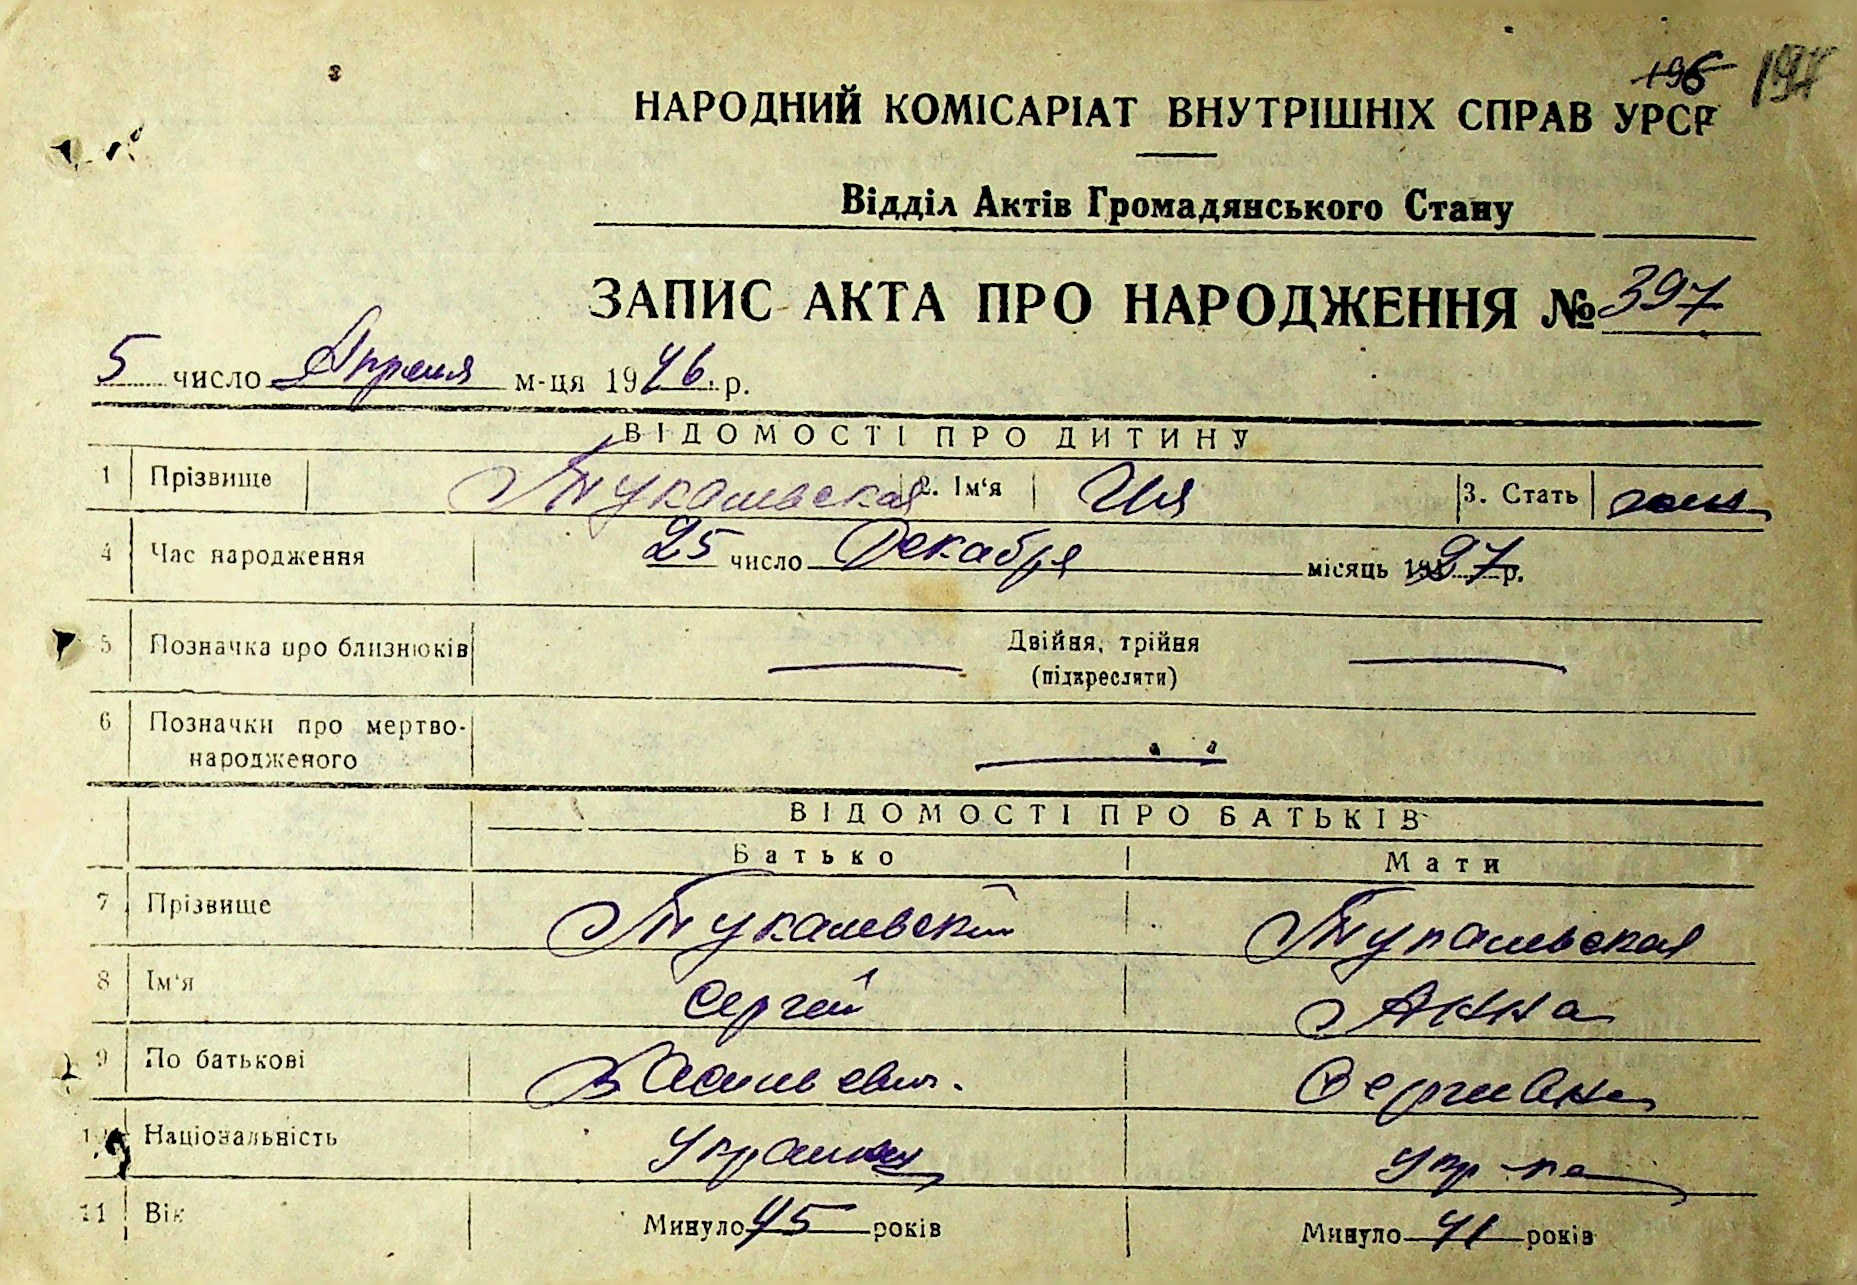 196 197
НАРОДНИЙ КОМІСАРІАТ ВНУТРІШНІХ СПРАВ УРСР
Відділ Актів Громадянського Стану
ЗАПИС АКТА ПРО НАРОДЖЕННЯ № 397
5 число Апреля м-ця 1946. р.
ВІДОМОСТІ ПРО ДИТИНУ
1 Прізвище Тукалевская 2. Ім'я Ия 3. Стать жен
4 Час народження 25 число Декабря місяць 1927 р.
5 Позначка про близнюків Двійня, трійня
(підкресляти)
6 Позначки про мертво-
народженого
ВІДОМОСТІ ПРО БАТЬКІВ
Батько Мати
7 Прізвище Тукалевский Тукалевская
8 Ім'я Сергей Анна
9 По батькові Васильевич. Сергеевна
10 Національність Украинец Укр-ка
11 Вік Минуло 45 років Минуло 41 років